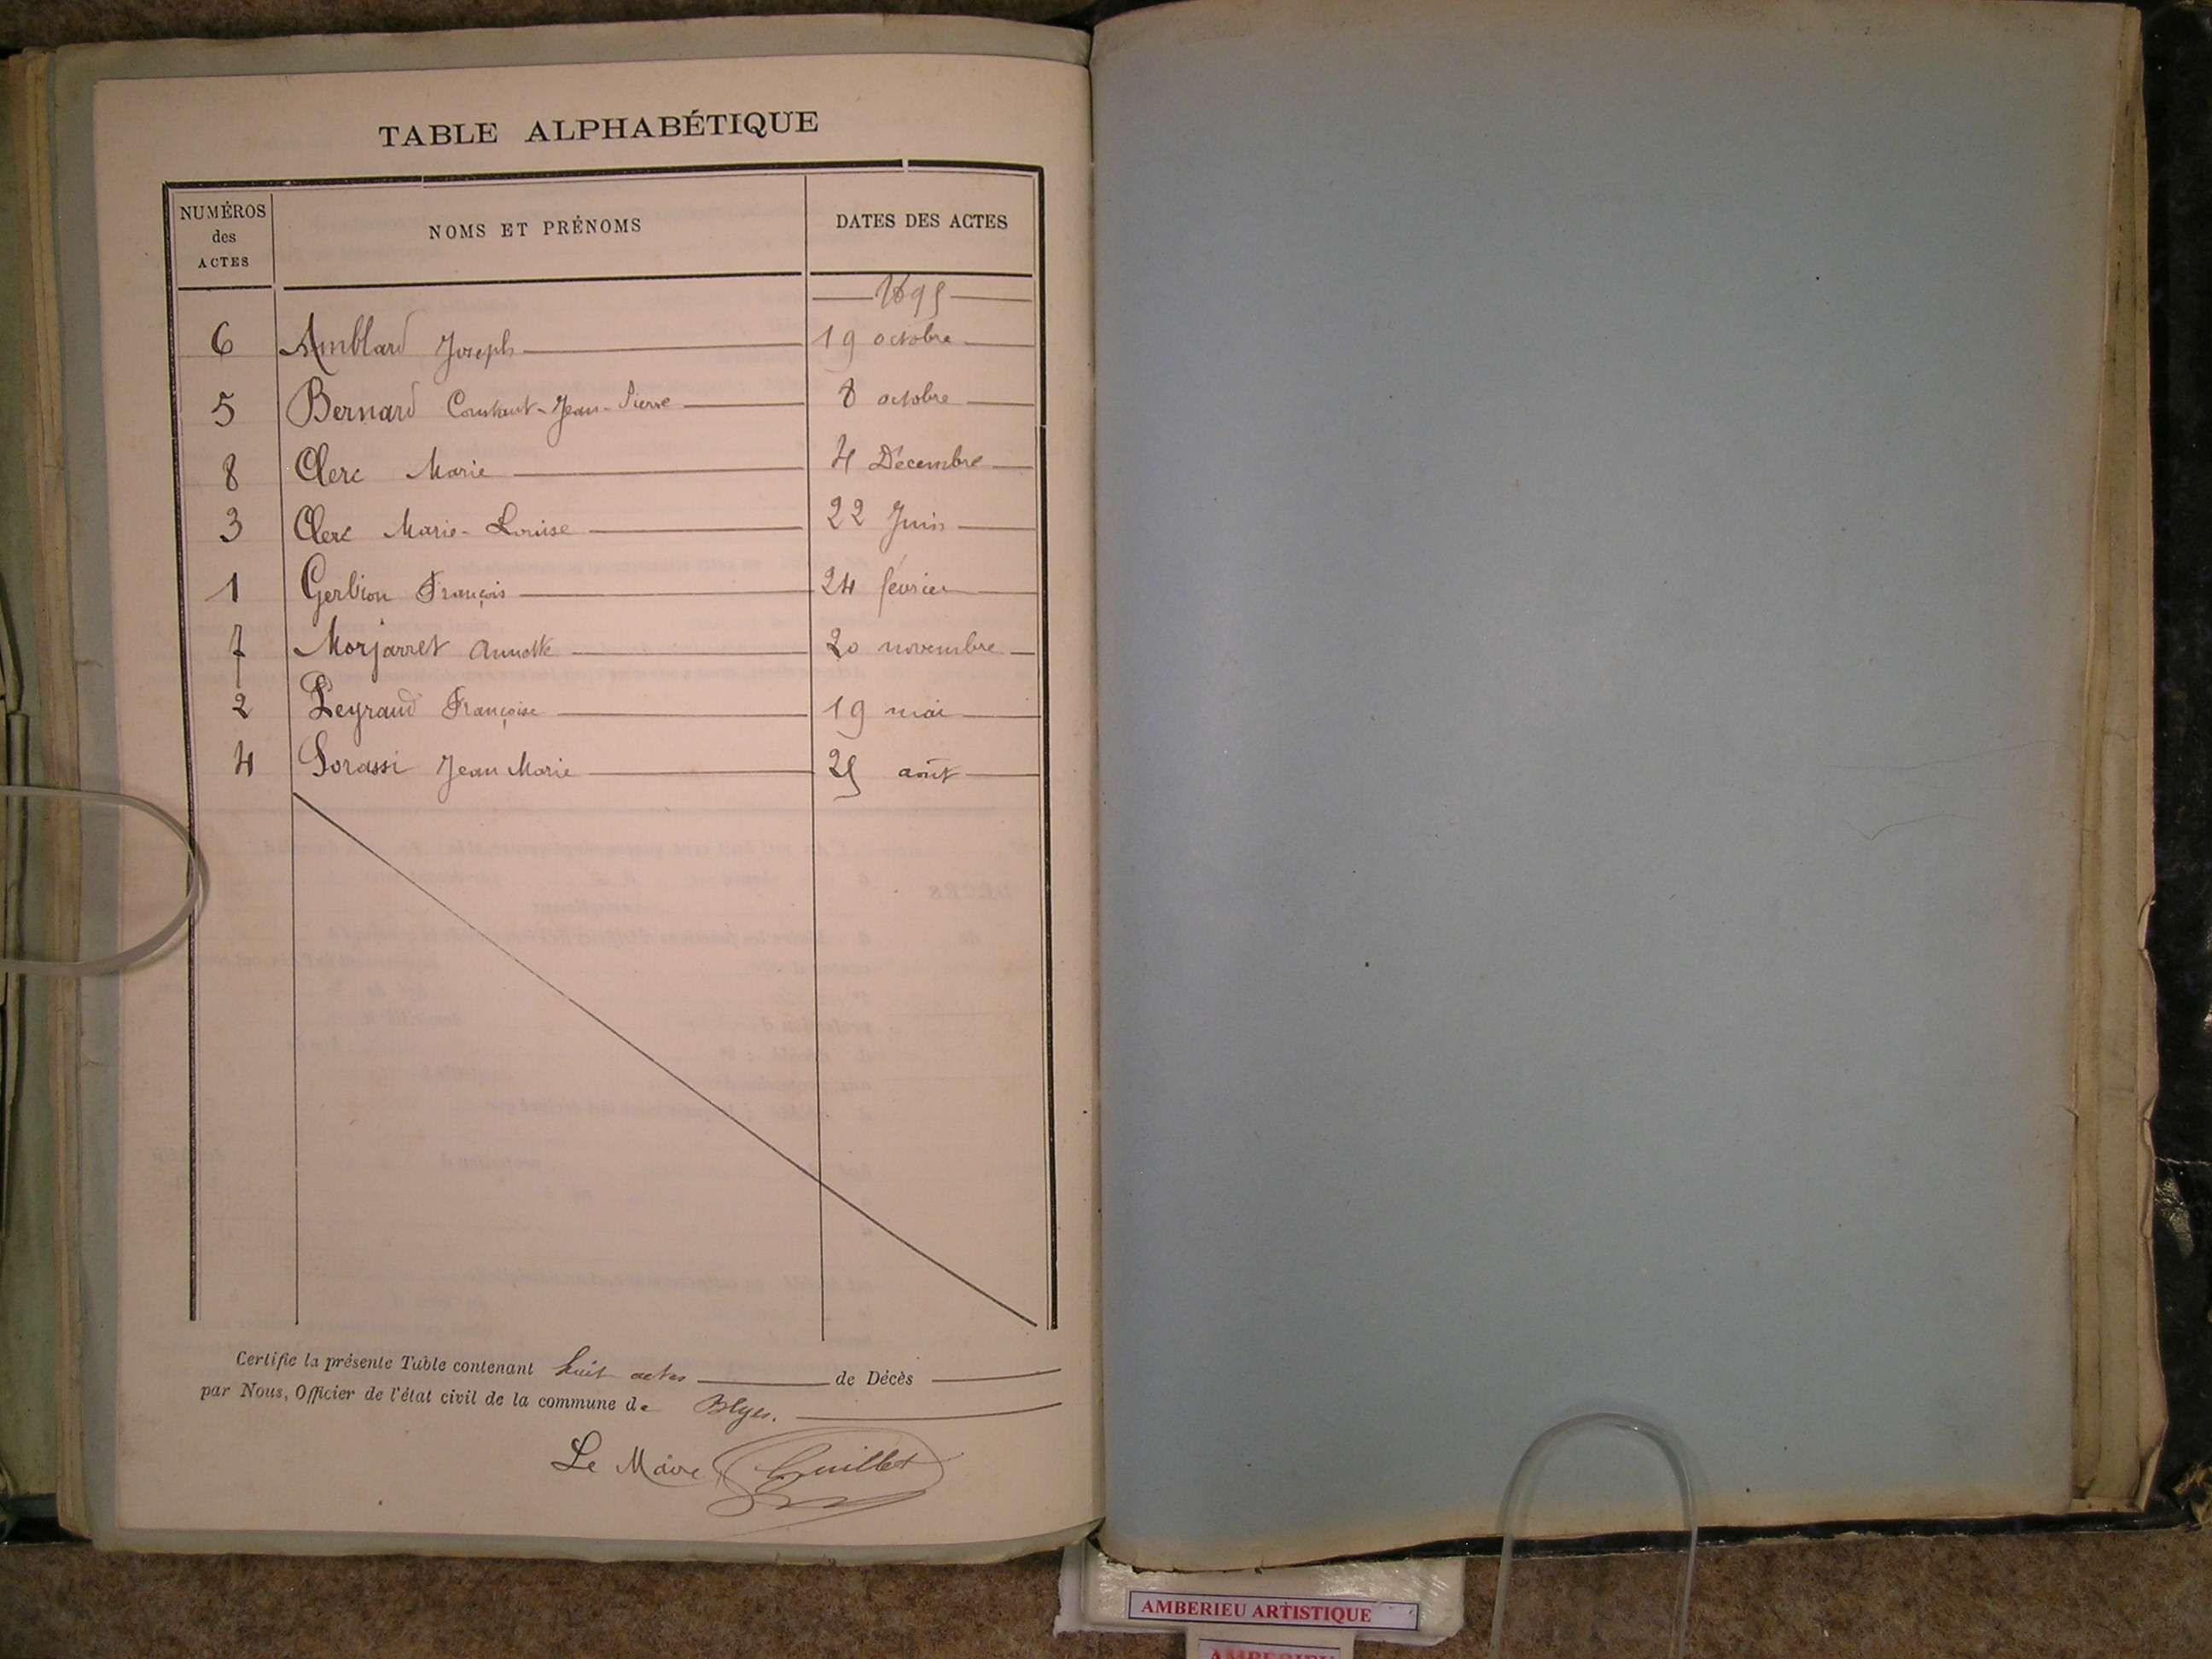 TABLE ALPHABÉTIQUE
NUMÉROS des ACTES NOMS ET PRÉNOMS DATES DES ACTES
1895
6 Amblard Joseph 19 octobre
5 Bernard Constant-Jean-Pierre 8 octobre
8 Clerc Marie 4 Décembre
3 Clerc Marie-Louise 22 Juin
1 Gerbion François 24 février
7 Morjarret Annette 20 novembre
2 Peyraud Françoise 19 mai
4 Sorassi Jean Marie 25 août
Certifie la présente Table contenant huit actes de Décès
par Nous, Officier de l'état civil de la commune de Blyes.
Le Maire Guillet
AMBERIEU ARTISTIQUE
AMBERIEU